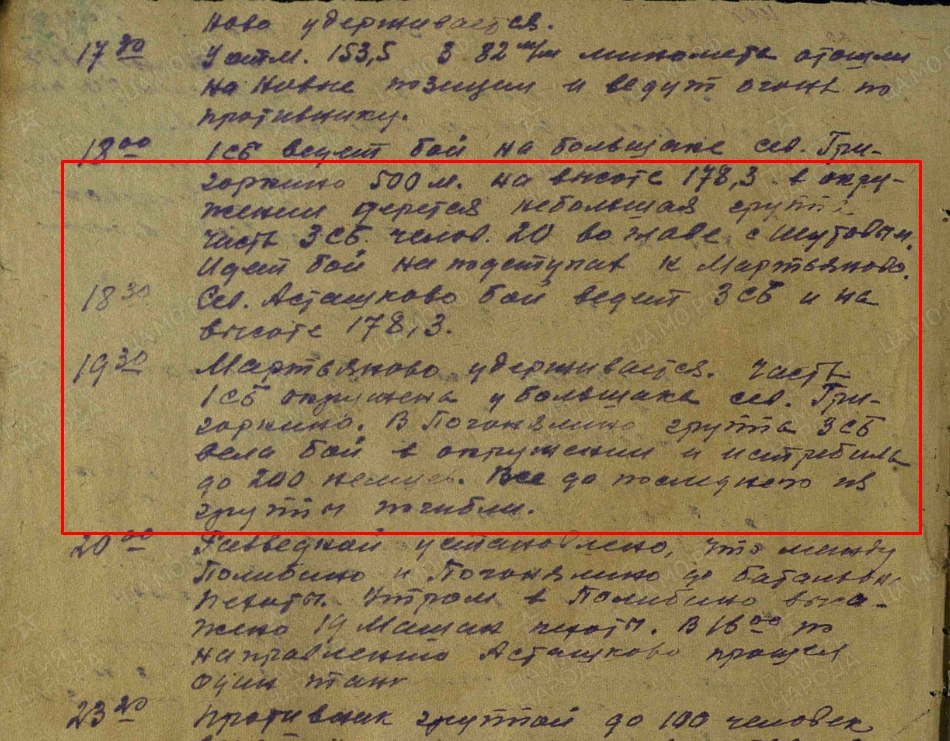 ново удерживается.
17 30 У отм. 153,5 3 82 м/м миномета отошли
на новые позиции и ведут огонь по
противнику.
18 00 1 сб ведет бой на большаке сев. Гри-
горкино 500 м. на высоте 178,3 в окру-
жении дерется небольшая группа
часть 3 сб. челов. 20 во главе с Шутовым.
Идет бой на подступах к Мартьяново.
18 30 Сев. Асташково бой ведет 3 сб и на
высоте 178,3.
19 30 Мартьяново удерживается. Часть
1 сб окружена у большака сев. Гри-
горкино. В Погонялино группа 3 сб
вела бой в окружении и истребила
до 200 немцев. Все до последнего из
группы погибли.
20 00 Разведкой установлено, что между
Полибино и Погонялино до батальона
пехоты. Утром в Полибино
19 машин пехоты. В 16 00 по
направлению Асташково прошел
один танк
23 20 Противник группой до 100 человек